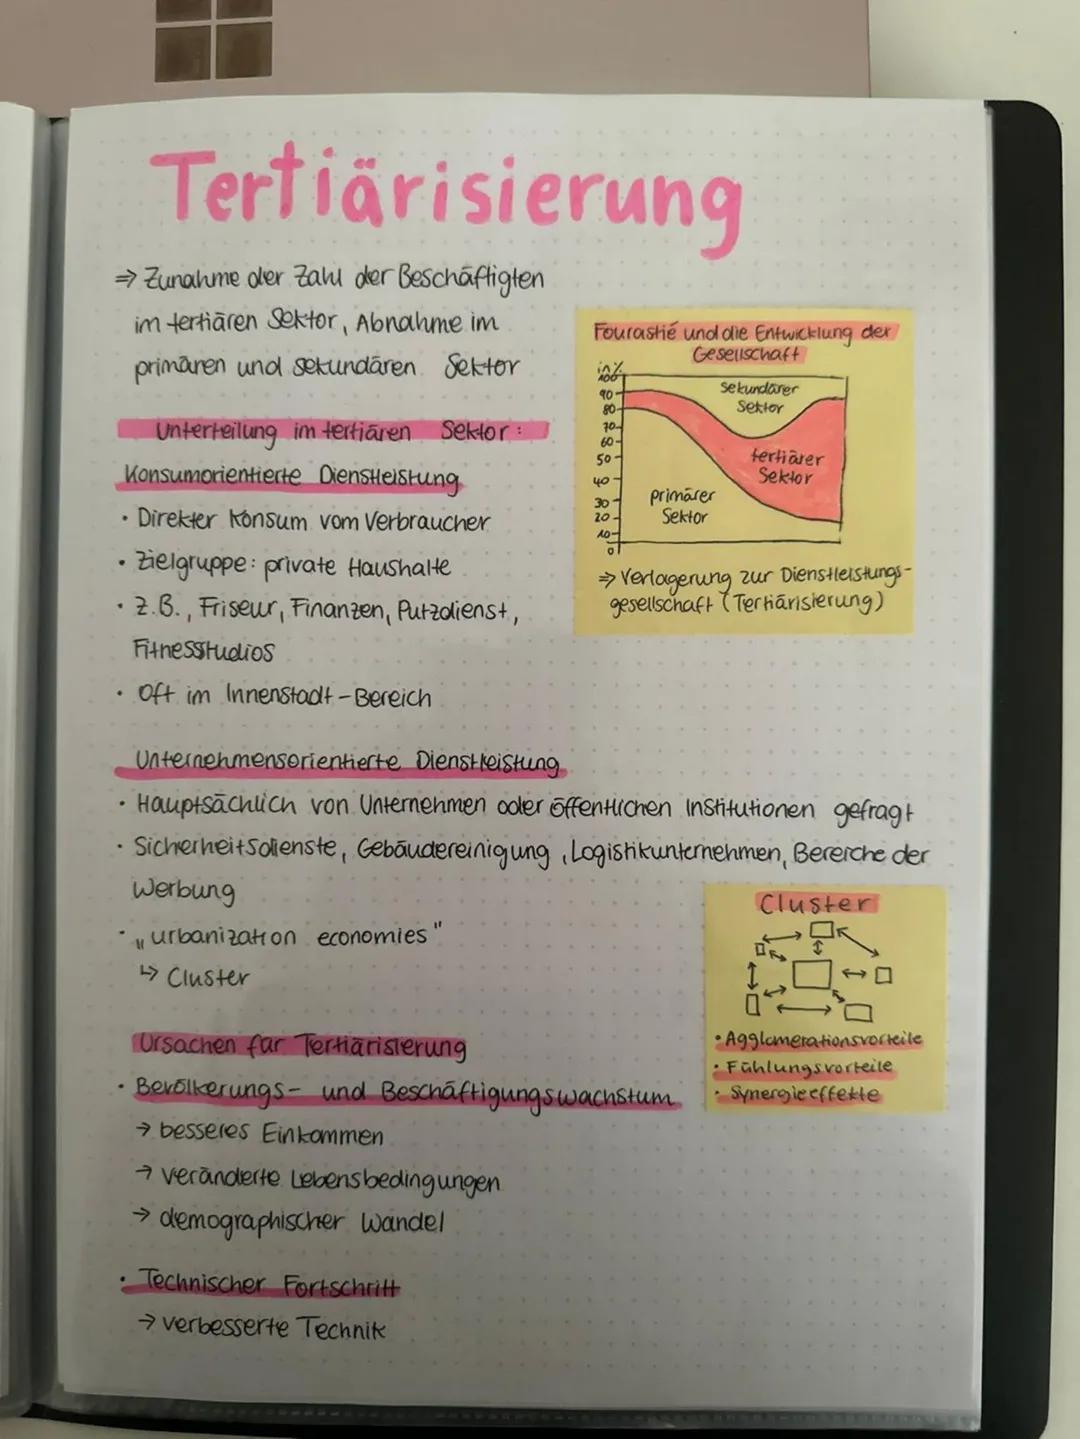 Tertiärisierung
⇒ Zunahme der Zahl der Beschäftigten
im tertiären Sektor, Abnahme im
primären und sekundären Sektor
Unterteilung im tertiären Sektor:
Konsumorientierte Dienstleistung
• Direkter Konsum vom Verbraucher
• Zielgruppe: private Haushalte
• z.B., Friseur, Finanzen, Putzdienst,
Fitnessstudios
• Oft im Innenstadt-Bereich
Fourastié und die Entwicklung der
Gesellschaft
in %
100
90
80
70
60
50
40
30
20
10
0
Sekundärer
Sektor
tertiärer
Sektor
primärer
Sektor
⇒ Verlagerung zur Dienstleistungs-
gesellschaft (Tertiärisierung)
Unternehmensorientierte Dienstleistung
• Hauptsächlich von Unternehmen oder öffentlichen Institutionen gefragt
• Sicherheitsdienste, Gebäudereinigung, Logistikunternehmen, Bereiche der
Werbung
• „urbanization economies"
↳ Cluster
Cluster
• Agglomerationsvorteile
• Fühlungsvorteile
• Synergieeffekte
Ursachen für Tertiärisierung
• Bevölkerungs- und Beschäftigungswachstum
→ besseres Einkommen
→ veränderte Lebensbedingungen
→ demographischer Wandel
• Technischer Fortschritt
→ verbesserte Technik